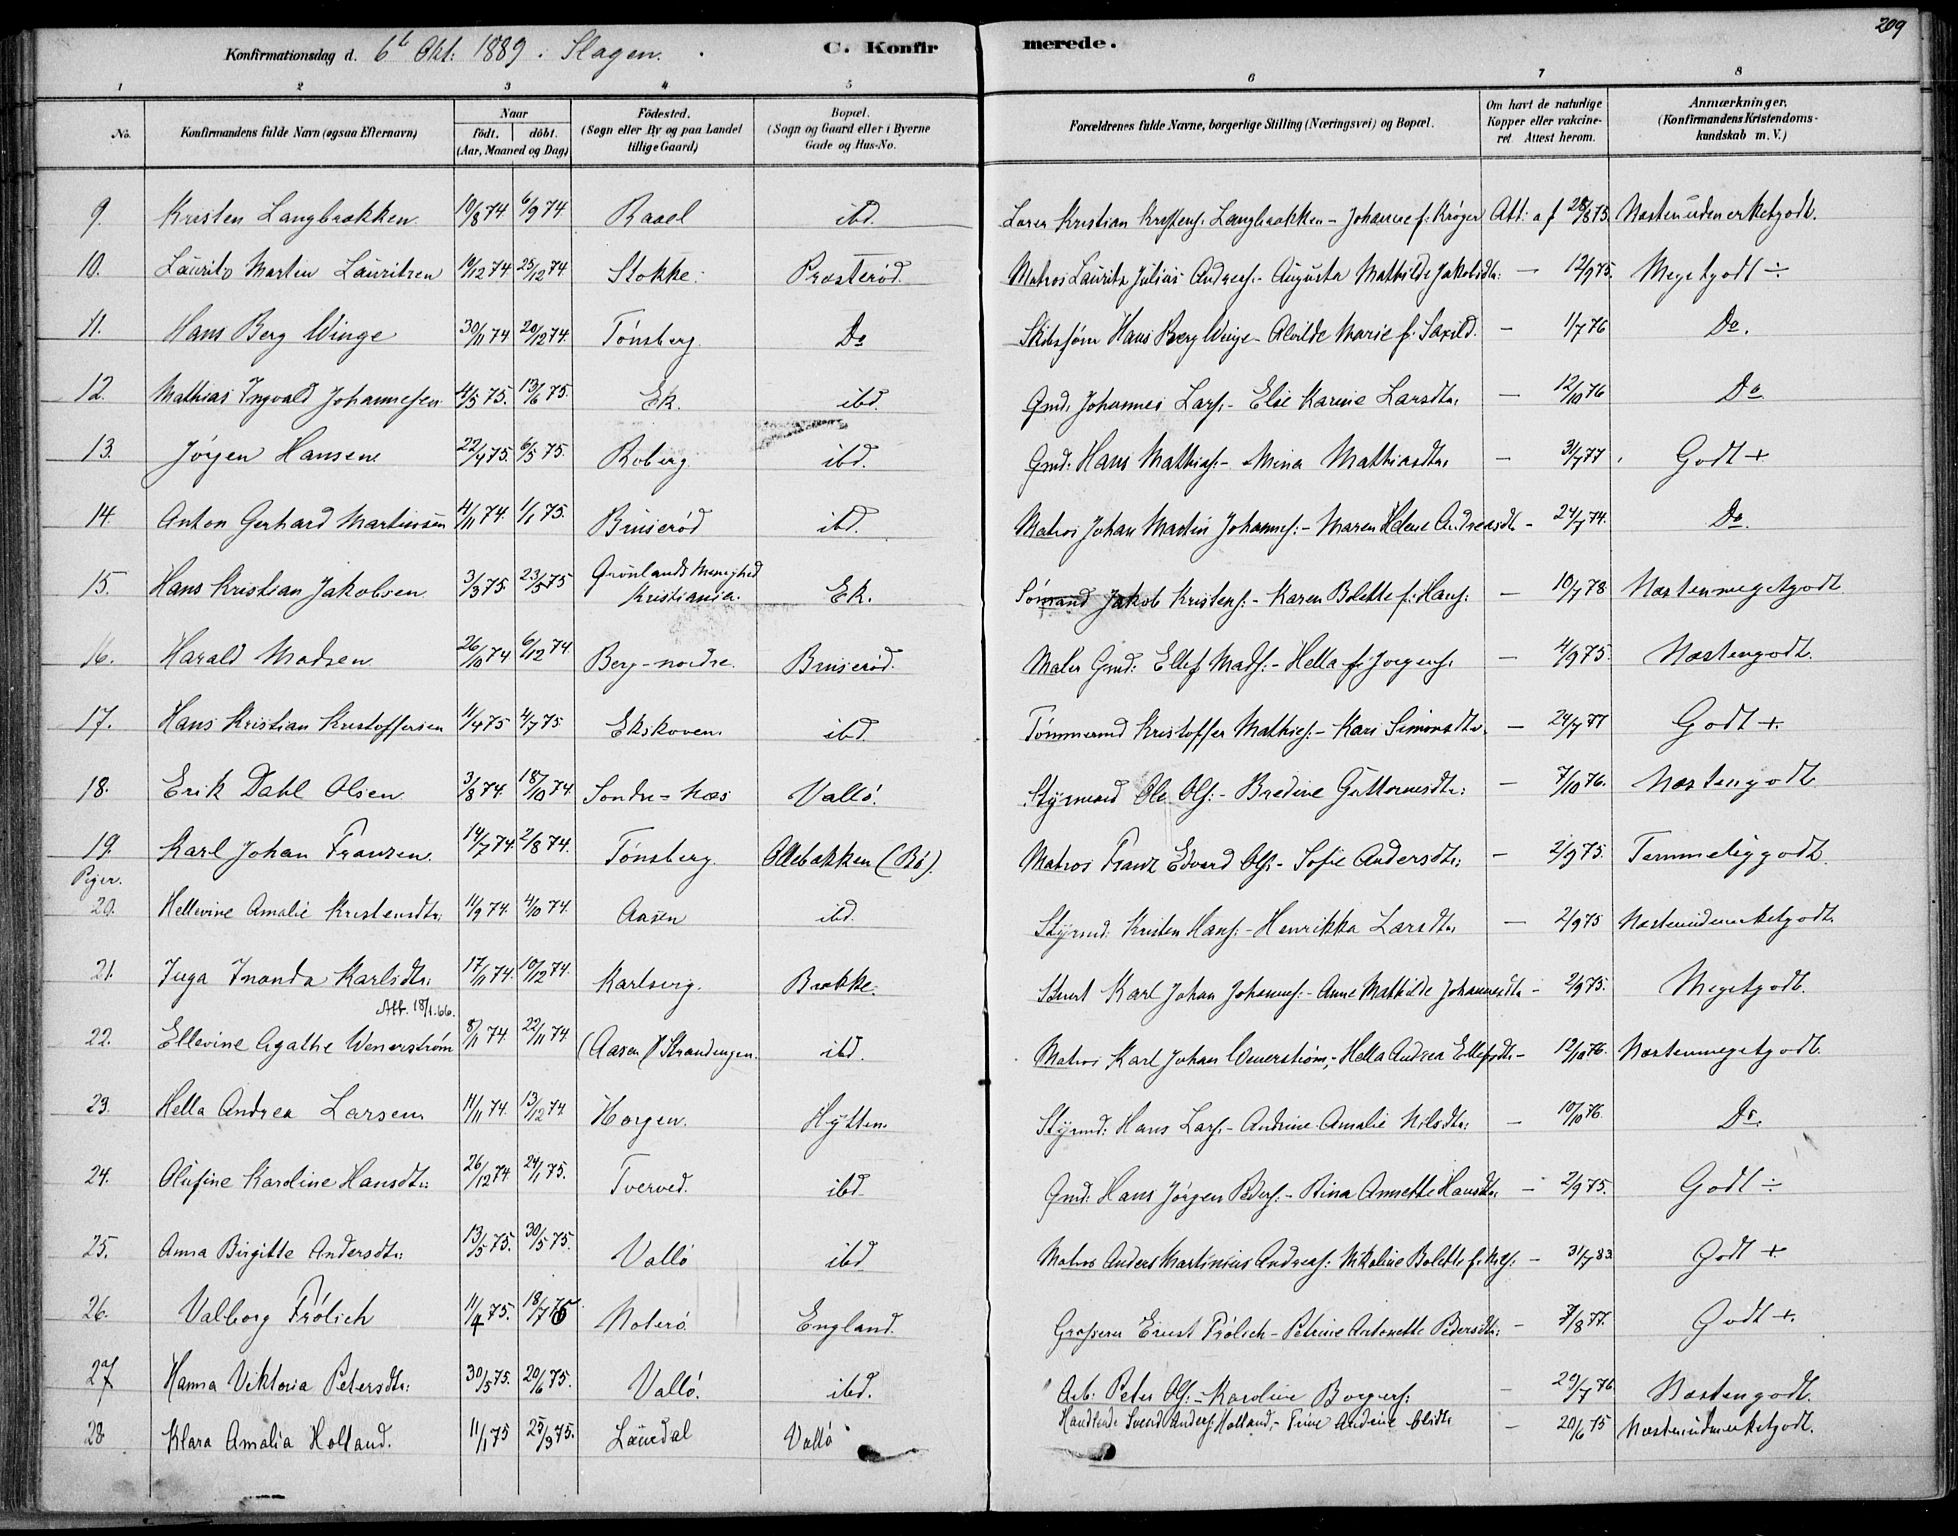 209
Konfirmationsdag d. 6t Okt: 1889. Slagen. C. Konfirmerede.
1 2 3 4 5 6 7 8
No. Konfirmandens fulde Navn (ogsaa Efternavn) Naar födt. döbt. (Aar, Maaned og Dag) Födested. (Sogn eller By og paa Landet tillige Gaard) Bopæl. (Sogn og Gaard eller i Byerne Gade og Hus-No. Forældrenes fulde Navne, borgerlige Stilling (Næringsvei) og Bopæl. Om havt de naturlige Kopper eller vaccineret. Attest herom. Anmærkninger. (Konfirmandens Kristendomskundskab m. V.)
9. Kristen Langbrækken 10/8 74 6/9 74 Raael ibd. Lærer Kristian Kristens: Langbrækken - Johanne f. Krøger Att: af 28/8 75. Næstenudmerketgodt.
10. Lauritz Martin Lauritzen 10/12 74 25/12 74 Stokke. Præsterød. Matros Lauritz Julius Andreas: - Augusta Mathilde Jakobsdtr: — 12/9 75. Megetgodt ÷
11. Hans Berg Winge 30/11 74 20/12 74. Tønsberg. Do Skibsfører Hans Berg Winge - Alvilde Marie f. Saxild. — 1/7 76 Do.
12. Mathias Ingvald Johannesen 4/5 75. 13/6 75. Ek. ibd. Gmd: Johannes Lars. - Else Karine Larsdtr. — 12/10 76 Do
13. Jørgen Hansen 22/4 75. 6/5 75. Roberg. ibd. Gmd: Hans Mathias: - Mina Mathiasdtr. — 3/7 77 Godt +
14. Anton Gerhard Martinsen 4/11 74. 1/1 75. Bruserød ibd. Matros Johan Martin Johannes: - Maren Helene Andreasdtr - 24/7 74. Do.
15. Hans Kristian Jakobsen 3/3 75. 23/5 75 Grønlands Menighed Kristiania. Ek. Sømand Jakob Kristens: - Karen Bolette f. Hans: — 10/7 78 Næstenmegetgodt
16. Harald Madsen 26/10 74 6/12 74 Berg-nordre. Bruserød. Maler Gmd: Ellef Mads: - Hella f. Jørgens. — 4/9 75. Næstengodt.
17. Hans Kristian Kristoffersen 11/4 75 4/7 75 Ekskoven. ibd. Tømmermd Kristoffer Mathis: - Kari Simonsdtr. — 24/7 77 Godt +.
18. Erik Dahl Olsen 3/8 74. 18/10 74. Søndre=Næs Vallö. Styrmand Ole Ols: - Bredine Guttormsdtr: — 7/10 76. Næstengodt
19. Karl Johan Franzen. 14/7 74. 2/8 74. Tønsberg. Ollebakken (Bø). Matros Franz Edvard Ols. - Sofie Andersdtr: — 2/9 75. Temmeliggodt.
Piger.
20. Hellevine Amalie Kristensdtr: 11/9 74. 4/10 74. Aasen ibd. Styrmd: Kristen Hans: - Henrikka Larsdtr. — 2/9 75 Næstenudmerketgodt.
21. Inga Inanda Karlsdtr: 17/11 74. 10/12 74. Karlsvig. Bakke. Karl Johan Johannes: - Anne Mathilde Johannesdtr - 2/9 75. Megetgodt.
Att. 18/1.66.
22. Ellevine Agathe Wenerstrøm 8/11 74 22/11 74. (Aasen) Strandengen. ibd. Matros Karl Johan Wenerstrøm, - Hella Andrea Ellefsdtr - 12/10 76. Næstenmegetgodt.
23. Hella Andrea Larsen 11/11 74. 13/12 74 Horgen. Hytten. Styrmd: Hans Lars. - Andrine Amalie Nilsdtr: — 10/10 76. Do.
24. Olufine Karoline Hansdtr: 26/12 74. 24/1 75. Tverved. ibd. Gmd: Hans Jørgen Peders: - Rina Annette Hansdtr. — 2/9 75. Godt ÷
25. Anna Birgitte Andersdtr: 13/5 75. 30/5 75. Vallö ibd Matros Anders Martinius Andreas: Nikoline Bolette f. Nils: — 31/7 83. Godt +
26. Valborg Frölich 11/4 75. 18/7 75 Nøterö. England. Grosserer Ernst Frölich - Petrine Antonette Pedersdtr: 7/8 77. Godt +.
27 Hanna Viktoria Petersdtr: 30/5 75. 20/6 75. Vallö. ibd. Arb: Peter Ols: - Karoline Borgers: — 29/7 76 Næstengodt.
28 Klara Amalia Holland. 11/1 75 25/3 75. Laurdal Vallö Handlende Svend Anders: Holland, - Trine Andrine Olsdtr — 20/6 75 Næstenudmerketgodt.